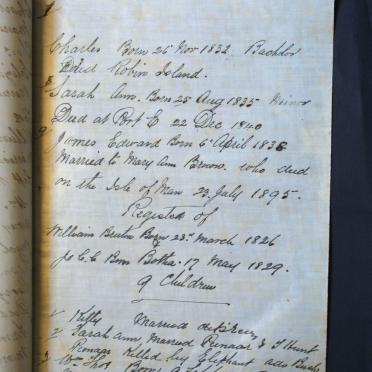 Charles Born 26 Nov 1832 Bachlor
Died Robin Island.
Sarah Ann. Born 25 Aug 1835
Died at Port E 22 Dec 1840
9 James Edward Born 6 April 1836
Married to Mary Ann Brown. who died
on the Isle of Man 23 July 1895.
Register of
William Bruton Born 23rd March 1826
Jo C. C Born Botha. 17 May 1829.
9 Children
1 Kitty Married
2 Sarah Ann, Married Pienaar & J Hunt
Pienaar Killed by Elephant
3 Wm Thos Born